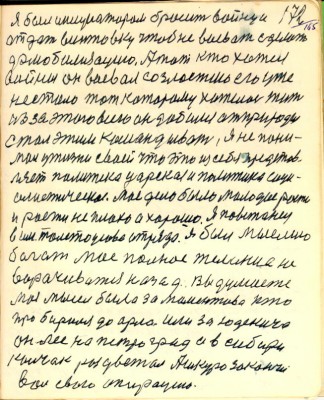 178
165
Я был инициатором бросит войну и
отдат винтовку чтоб не воеват сделат
демобилизацию. А тот кто хотел
войны он воевал со злостью его уже
не стало тот которому хотелос жит
из за этого всего он добился от природы
стал этим командыват, я не пони-
мая у жизни своей что это из себя представ-
ляет политека царская и политика соци-
алистическая. Мое дело было молодое рости
и рости не плохо а хорошо. Я попытанец
в им Толстоусова отряда. Я был мыслею
богат мое полное желание не
ворачиватся назад. Вы думаете
моя мысел была за Мамонтова кто
про бирался до арла или за юденича
он лез на петроград а в сибири
колчак рысцветал Я скоро закончил
вал свою апирацию.